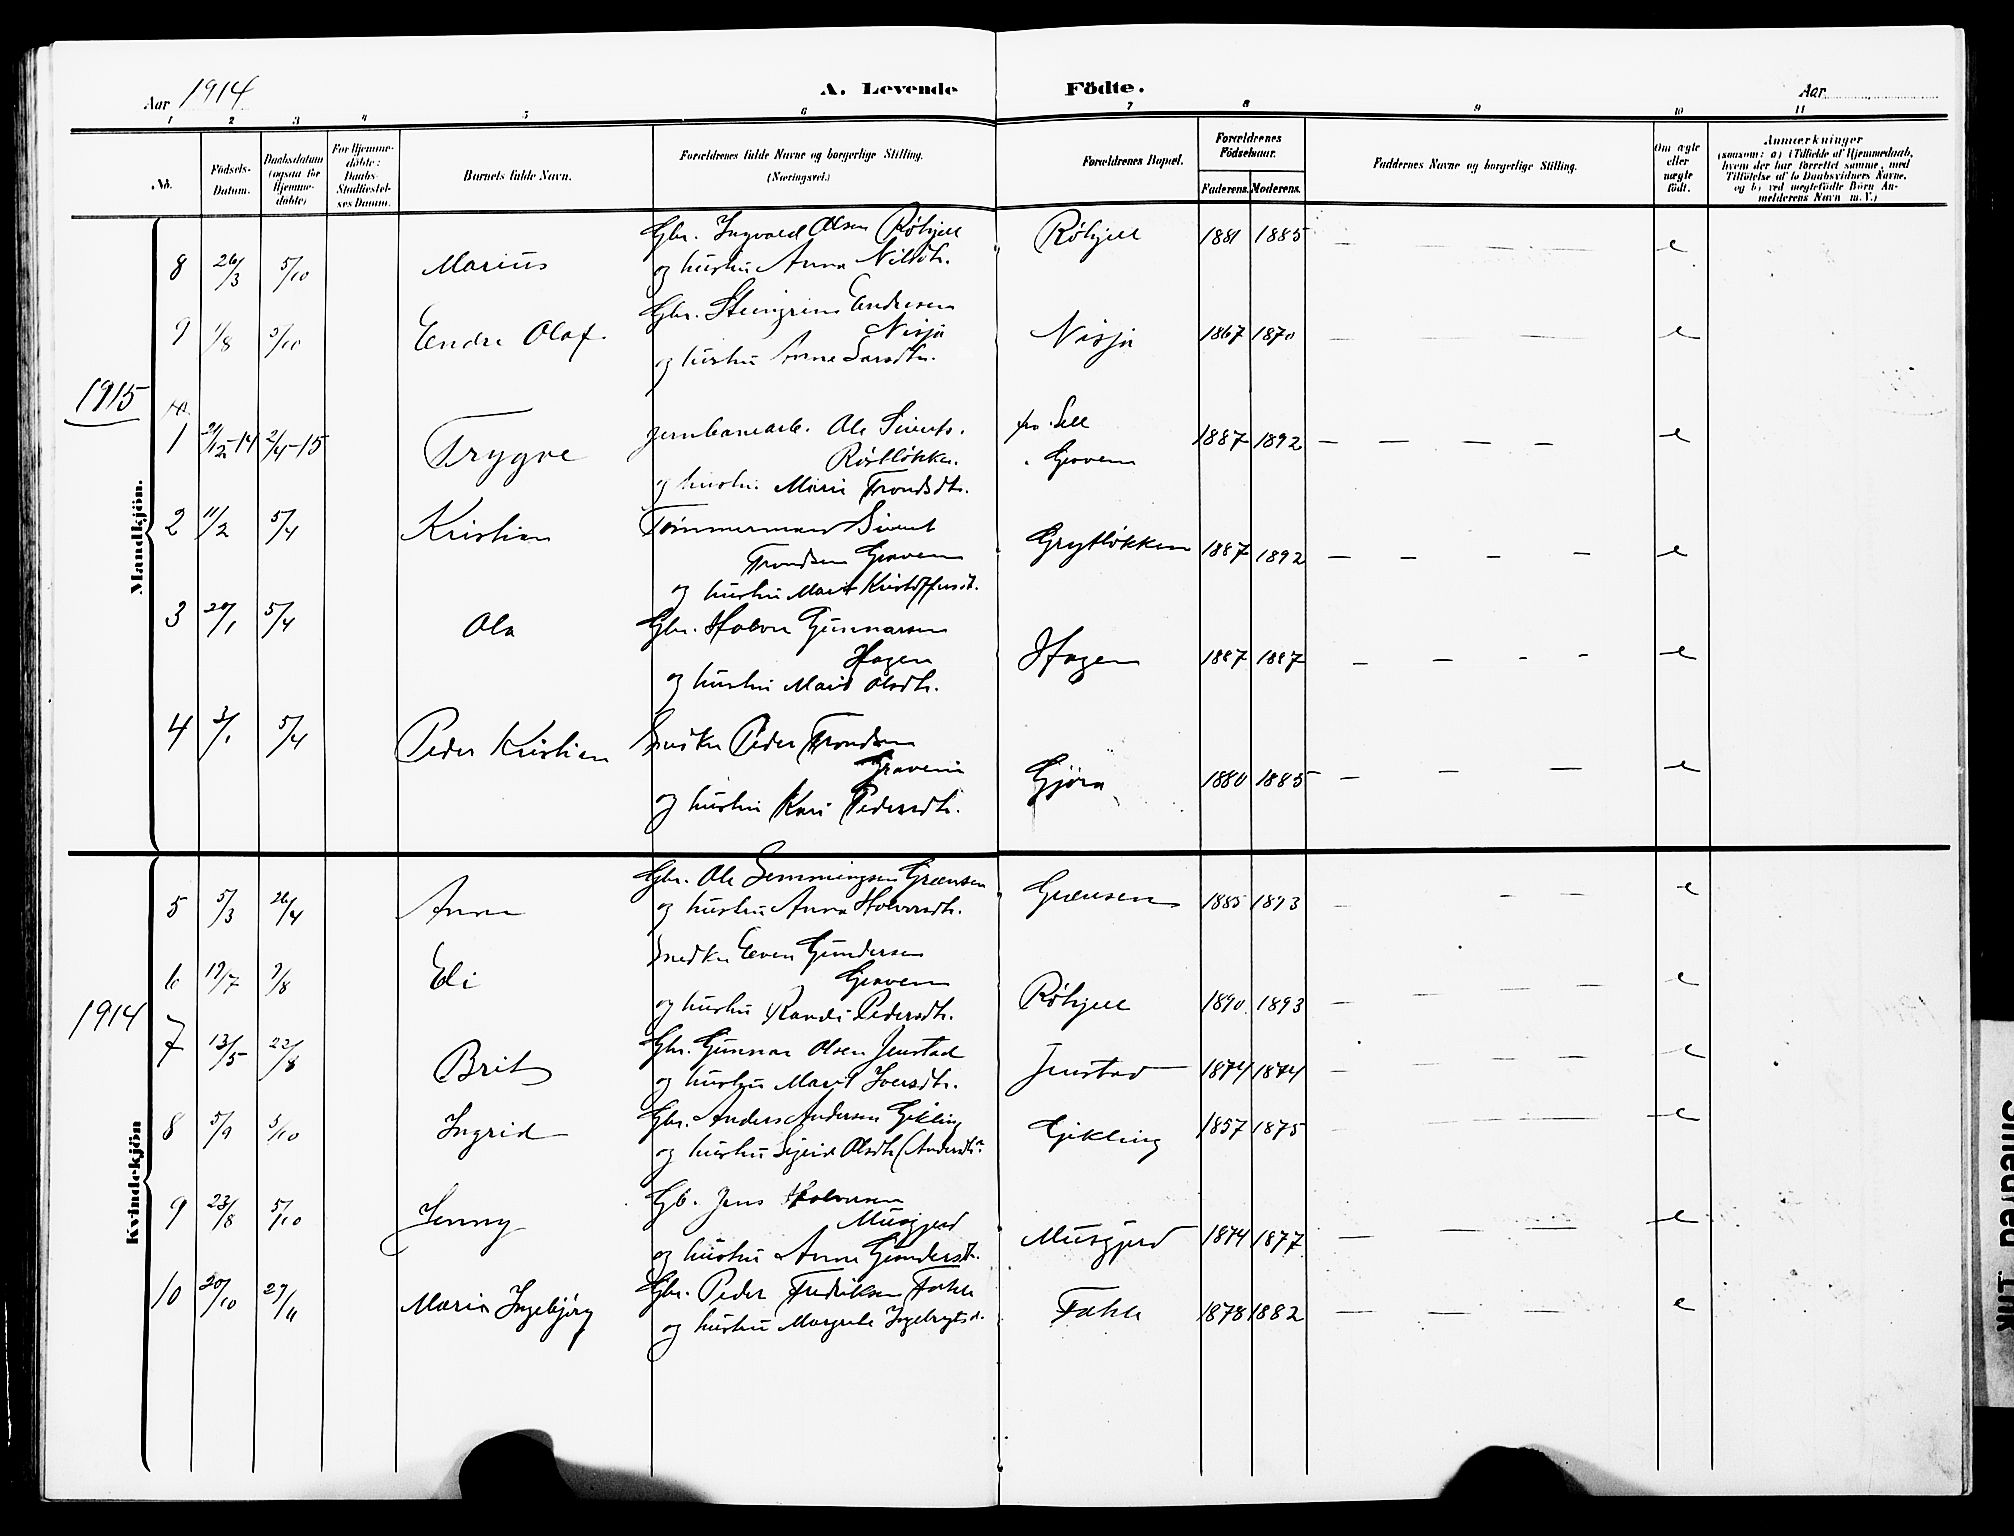 Aar 1914
A. Levende Födte.
Aar
1 2 3 4 5 6 7 8 9 10 11
No.
Födsels-Datum.
Daabsdatum (ogsaa for Hjemmedöbte)
For Hjemmedöbte: Daabs-Stadfæstelses Datum.
Barnets fulde Navn.
Forældrenes fulde Navne og borgerlige Stilling.
(Næringsvei.)
Forældrenes Bopæl.
Forældrenes Födselsaar.
Faderens. Moderens.
Faddernes Navne og borgerlige Stilling.
Om ægte eller uægte födt.
Anmærkninger
(saasom: a) i Tilfælde af Hjemmedaab,
hvem der har forrettet samme, med
Tilföielse af to Daabsvidners Navne,
og b) ved uægtefödte Börn An-
melderens Navn m. V.)
Mandkjön.
Gbr. Ingvald Olsen Röhjell
8 26/3 5/10 Marius og hustru Anna Nilsdtr. Röhjell 1881 1885 — — — — e
Gbr. Steingrim Endresen
Nisja
9 1/8 5/10 Endre Olaf og hustru Anne Larsdtr. Nisja 1867 1870 — — — e
1915
Jernbanearb. Ole Siverts.
Röstlökken.
1 21/12-14 2/4-15 Trygve og hustru Marie Trondsdtr. Gravem 1887 1892 — — — — e
Tömmermand Sivert
Trondsen Gravem
2 11/2 5/4 Kristian og hustru Marit Kristoffersd. Grytlökken 1887 1892 — — — — e
Gbr. Halvor Gunnarsen
Hagen
3 20/1 5/4 Ola og hustru Marit Olsdtr. Hagen 1887 1887 — — - - e
Snedker Peder Trondsen
Gravem
4 3/1 5/4 Peder Kristian og hustru Kari Pedersdtr. Gjöra 1880 1885 — — — e
Kvindekjön
Gbr. Ole Semmingsen Grænsen
5 5/3 26/4 Anne og hustru Anna Halvorsdtr. Grænsen 1885 1893 — — — e
Snedker Even Gundersen
Gravem
6 19/7 9/8 Eli og hustru Randi Pedersdtr. Röhjell 1890 1893 — — — — e
1914
Gbr. Gunnar Olsen Jenstad
7 13/5 23/8 Brit og hustru Marit Iversdtr. Jenstad 1874 1874 — — — e
Gbr. Anders Andersen Gikling
8 5/9 5/10 Ingrid og hustru Sigrid Olsdtr (Andersdtr) Gikling 1857 1875 — — — e
Gb. Jens Halvorsen
Musgjerd
9 23/8 5/10 Jenny og hustru Anne Gundersdtr. Musgjerd 1874 1877 — — — e
Gbr. Peder Fredriksen Fahle
10 20/10 29/11 Maria Ingebjörg og hustru Margrete Ingebrigtsd. Fahle 1878 1882 — — — e